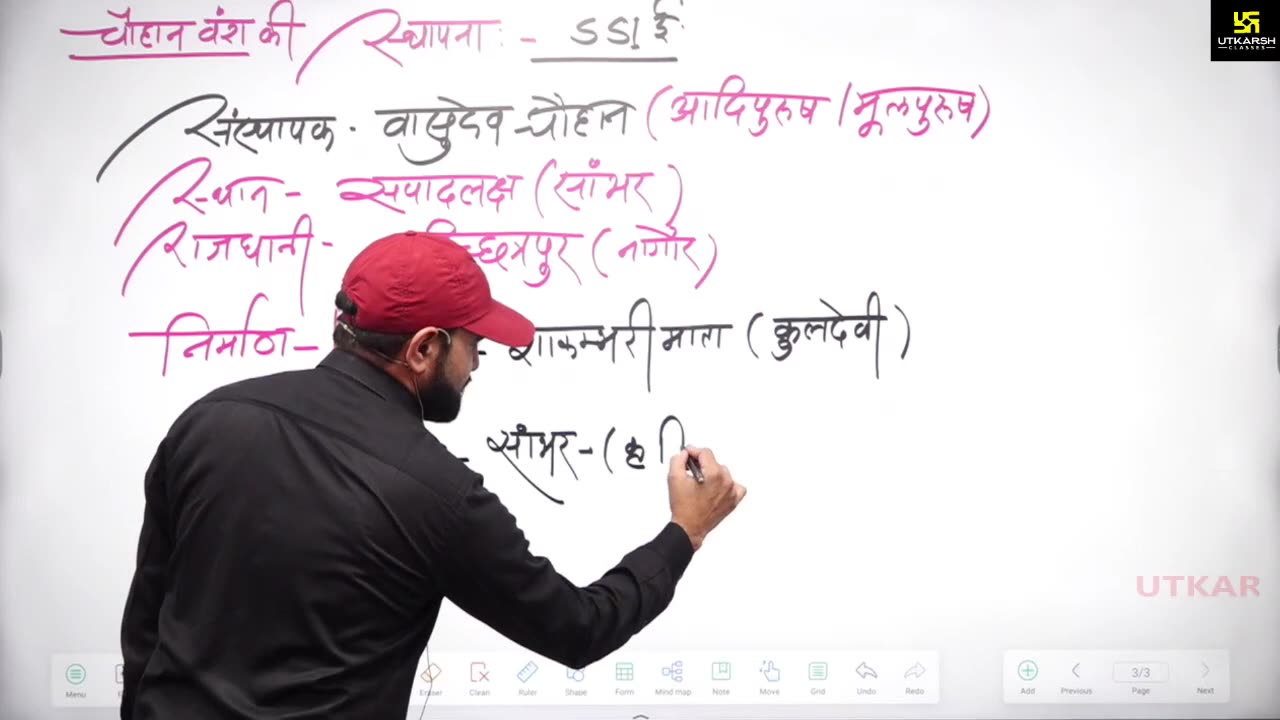 चौहान वंश की स्थापना :- 551 ई.
संस्थापक - वासुदेव चौहान (आदिपुरुष / मूलपुरुष)
स्थान - सपादलक्ष (सांभर)
राजधानी - च्छत्रपुर (नागौर)
निर्माण - - शाकम्भरी माता (कुलदेवी)
- सांभर - (
UTKARSH
CLASSES
UTKAR
Menu Eraser Clean Ruler Shape Form Mind map Note Move Grid Undo Redo Add Previous 3/3 Page Next